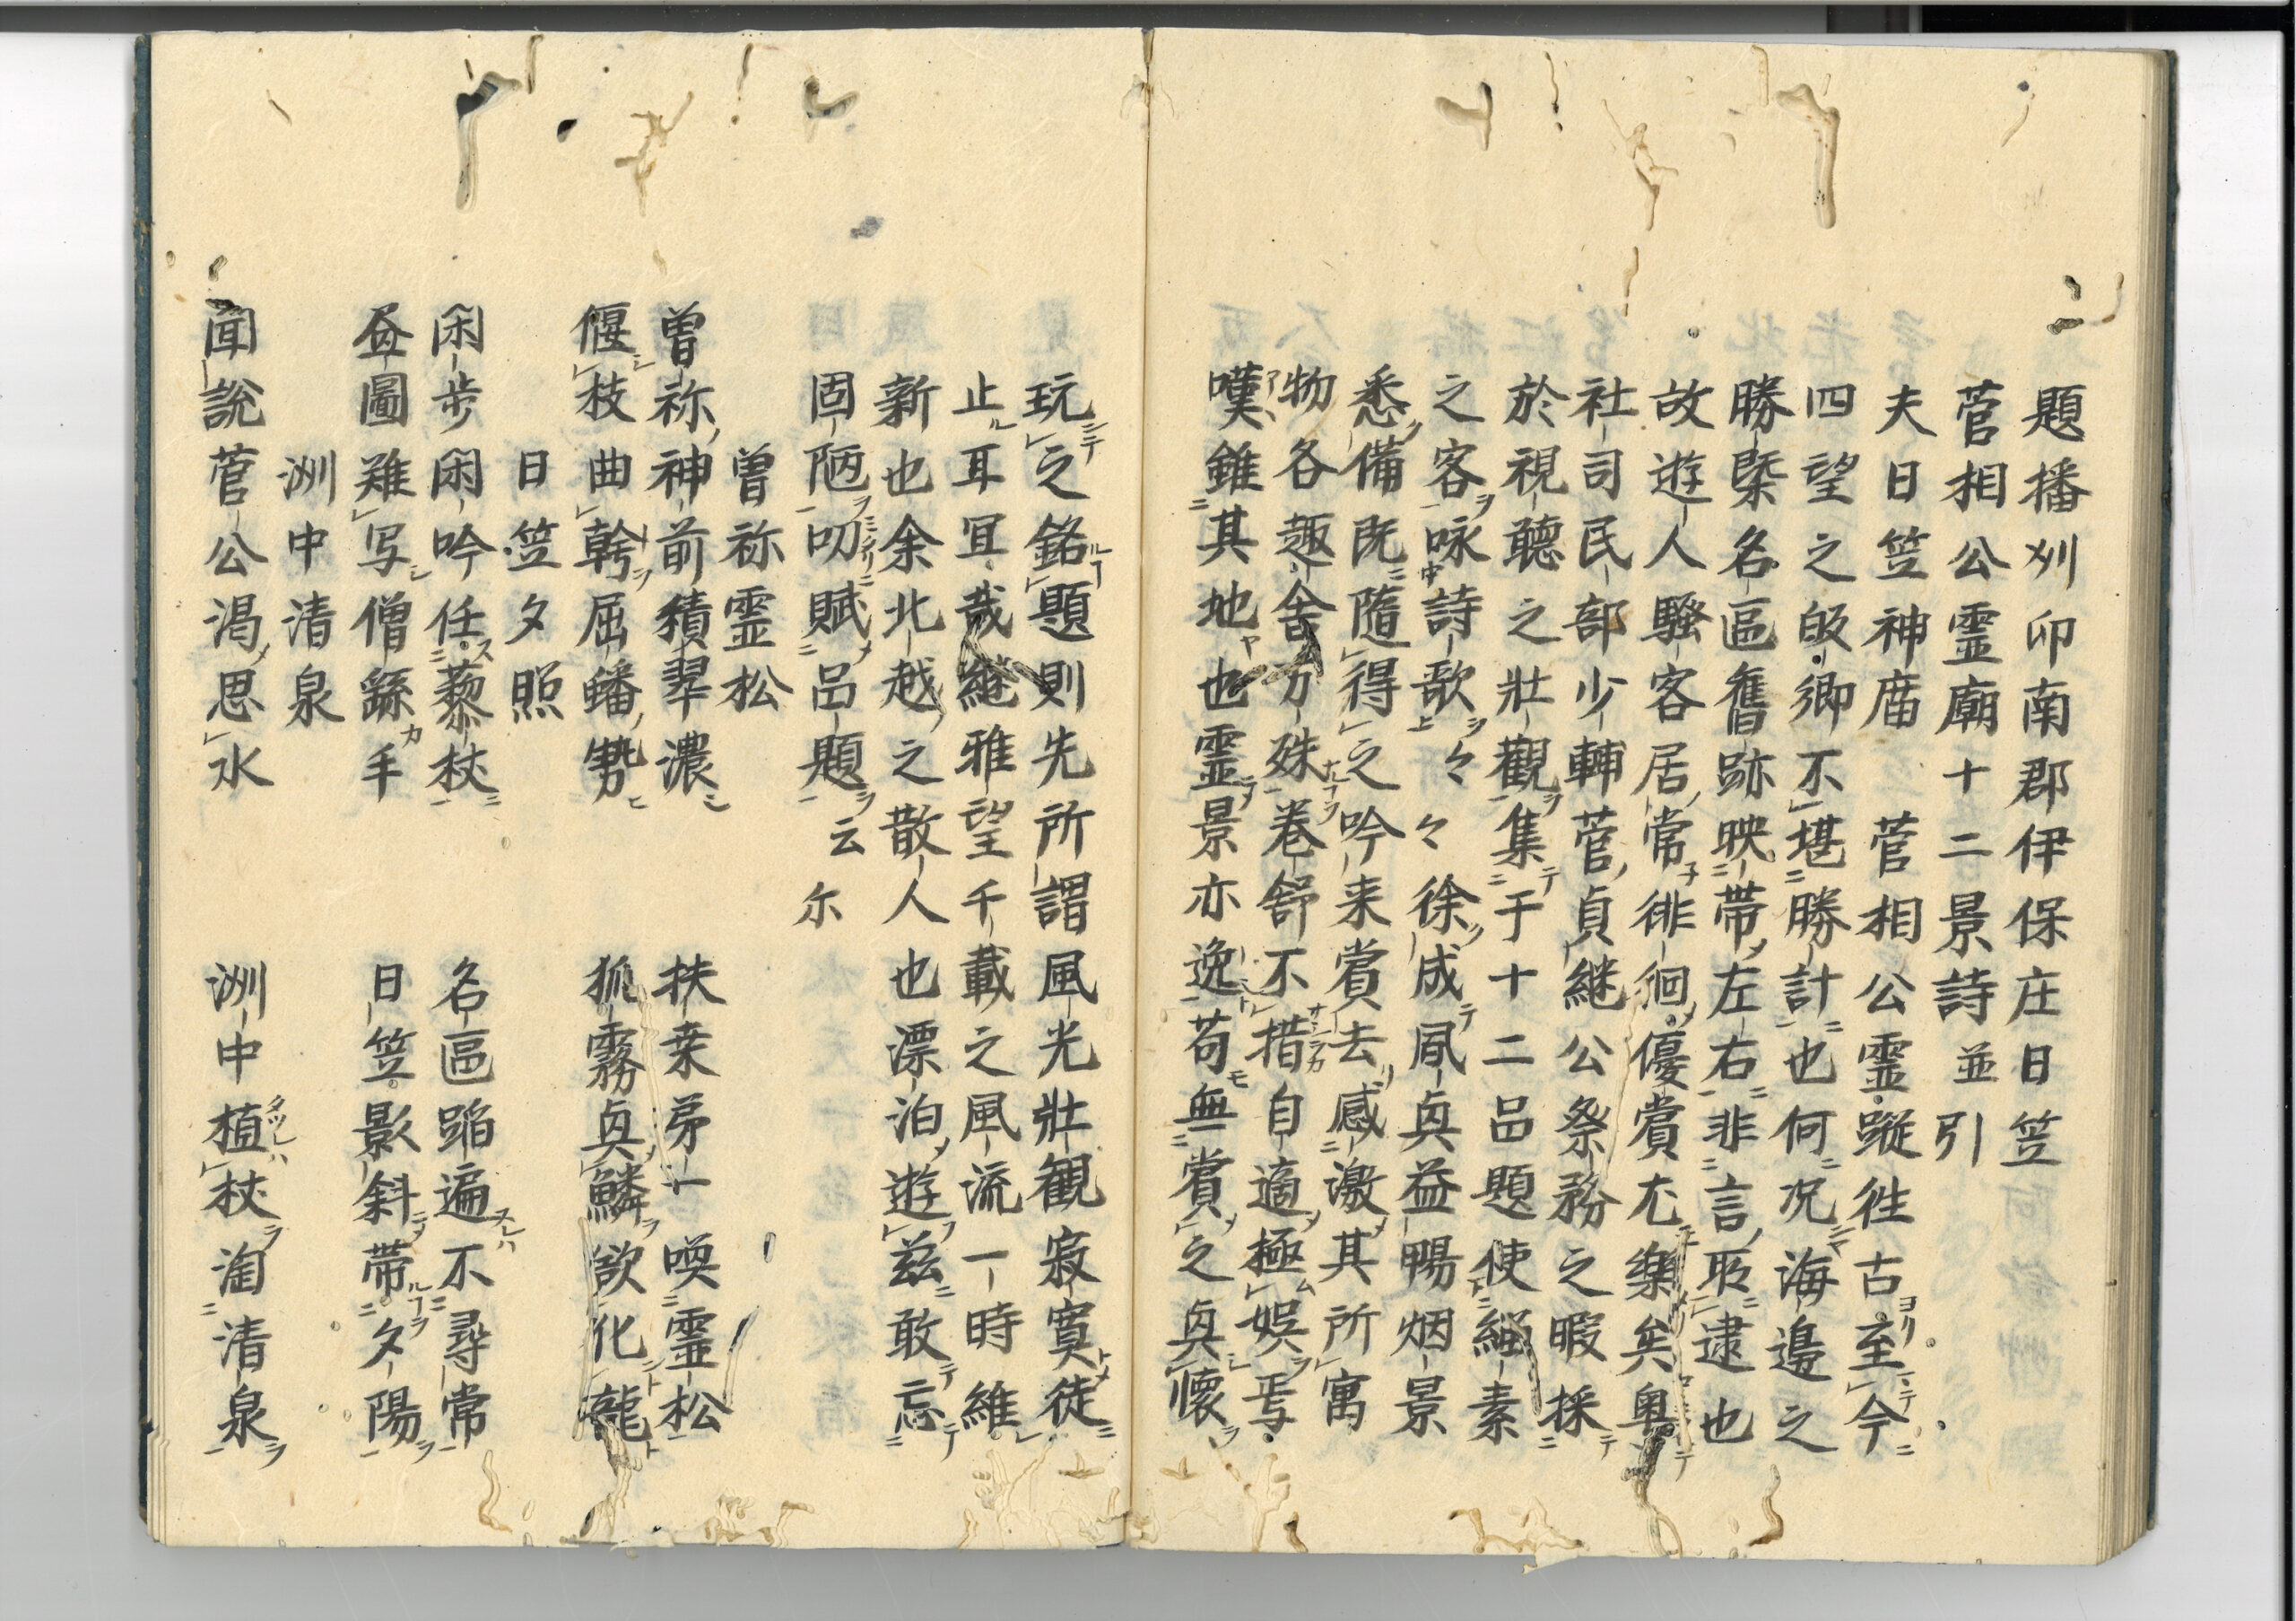 題播州印南郡伊保庄日笠
菅相公霊廟十二景詩並引
夫日笠神庿　菅相公霊蹤徃古至今
四望之皈郷不堪勝計也何况海邊之
勝槩名區舊跡映帯左右非言取逮也
故遊人騒客居常徘徊優賞尤樂矣奥
社司民部少輔菅貞継公祭務之暇採
於視聽之壮觀集于十二品題使縕素
之客咏詩歌々々徐成夙奥益暢烟景
悉備既隨得之吟来賞去感激其所寓
物各趣舎万殊巻舒不措自適極娯焉
嘆錐其地也霊景亦逸苟無賞之奥懷
玩之銘題則先所謂風光壮観寂寞徒
止耳冝哉継雅望千載之風流一時維
新也余北越之散人也漂泊遊茲敢忘
固陋叨賦品題云尓
曽祢霊松
曽祢神前積翠濃　扶桒弟一喚霊松
偃枝曲幹屈蟠勢　狐霧奥鱗欲化龍
日笠夕照
闲歩闲吟任藜杖　名區蹈遍不尋常
昼圖難写僧繇手　日笠影斜帯夕陽
洲中清泉
聞說菅公渇思水　洲中植杖淘清泉